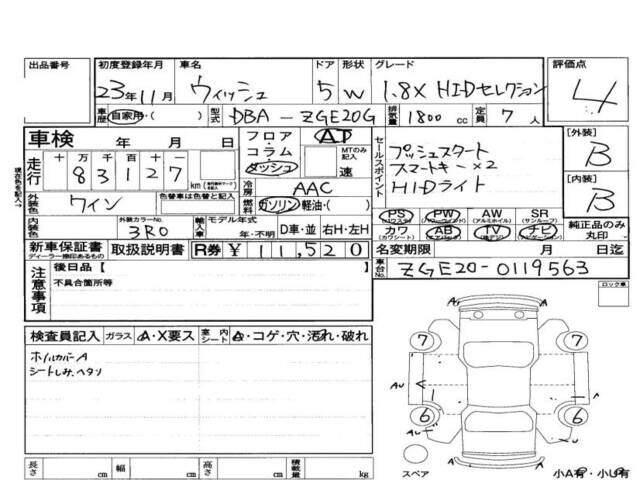 出品番号 初度登録年月 車名 ドア 形状 グレード 評価点
23年11月 ウィッシュ 5 W 1.8X HIDセレクション 4
車歴 自家用・( ) 型式 DBA-ZGE20G 排気量 1800 cc 定員 7 人
車検 年 月 日 フロア・コラム・ダッシュ AT MTのみ記入 速
走行 十 万 千 百 十 一
83127 km
セールスポイント プッシュスタート
スマートキー×2
HIDライト
[外装] B
[内装] B
冷房 AAC
外装色 ワイン 色替車は色替と記入 燃料 ガソリン・軽油・( )
PS (パワステ) PW (パワーウィンドウ) AW (アルミホイル) SR (サンルーフ)
カワ (カワシート) AB (エアバック) TV (地デジ) ナビ (ナビゲーション)
純正品のみ丸印
内装色 外装カラーNo. 3R0 輸入車 モデル年式 年・不明 D車・並 右H・左H
新車保証書 ディーラー捺印あるもの 取扱説明書 R券 ¥ 11,520
名変期限 月 日迄
車台No. ZGE20-0119563
現在色を記入→
注意事項 後日品【 】
不具合箇所等
ロック車
検査員記入 ガラス A・X要ス 室内シート A・コゲ・穴・汚れ・破れ
ホイルカバーA
シートしみ、ヘタリ
7 7
AU A
6 6
AU
AU
スペア 小A有・小U有
長さ cm 幅 cm 高さ cm 積載量 kg